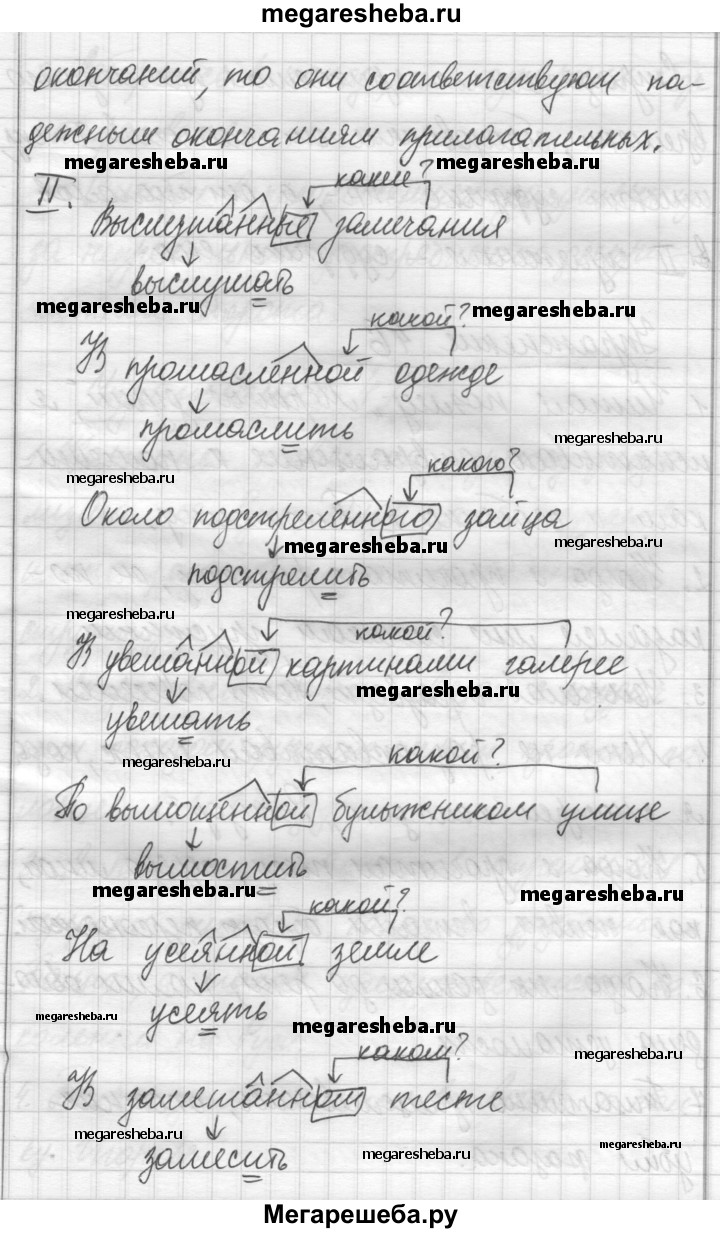 megaresheba.ru
окончаний, то они соответствуют па-
дежным окончаниям прилагательных.
megaresheba.ru megaresheba.ru
какие?
II.
Выслушанные замечания
выслушать
megaresheba.ru megaresheba.ru
какой?
В промасленной одежде
промаслить
megaresheba.ru
megaresheba.ru
какого?
Около подстреленного зайца
megaresheba.ru megaresheba.ru
подстрелить
megaresheba.ru
какой?
В увешанной картинами галерее
megaresheba.ru
увешать
megaresheba.ru
какой?
По вымощенной булыжником улице
вымостить
megaresheba.ru megaresheba.ru
какой?
На усеянной земле
усеять
megaresheba.ru megaresheba.ru
какой?
megaresheba.ru
В замешанном тесте
megaresheba.ru megaresheba.ru
замесить megaresheba.ru
Мегарешеба.ру